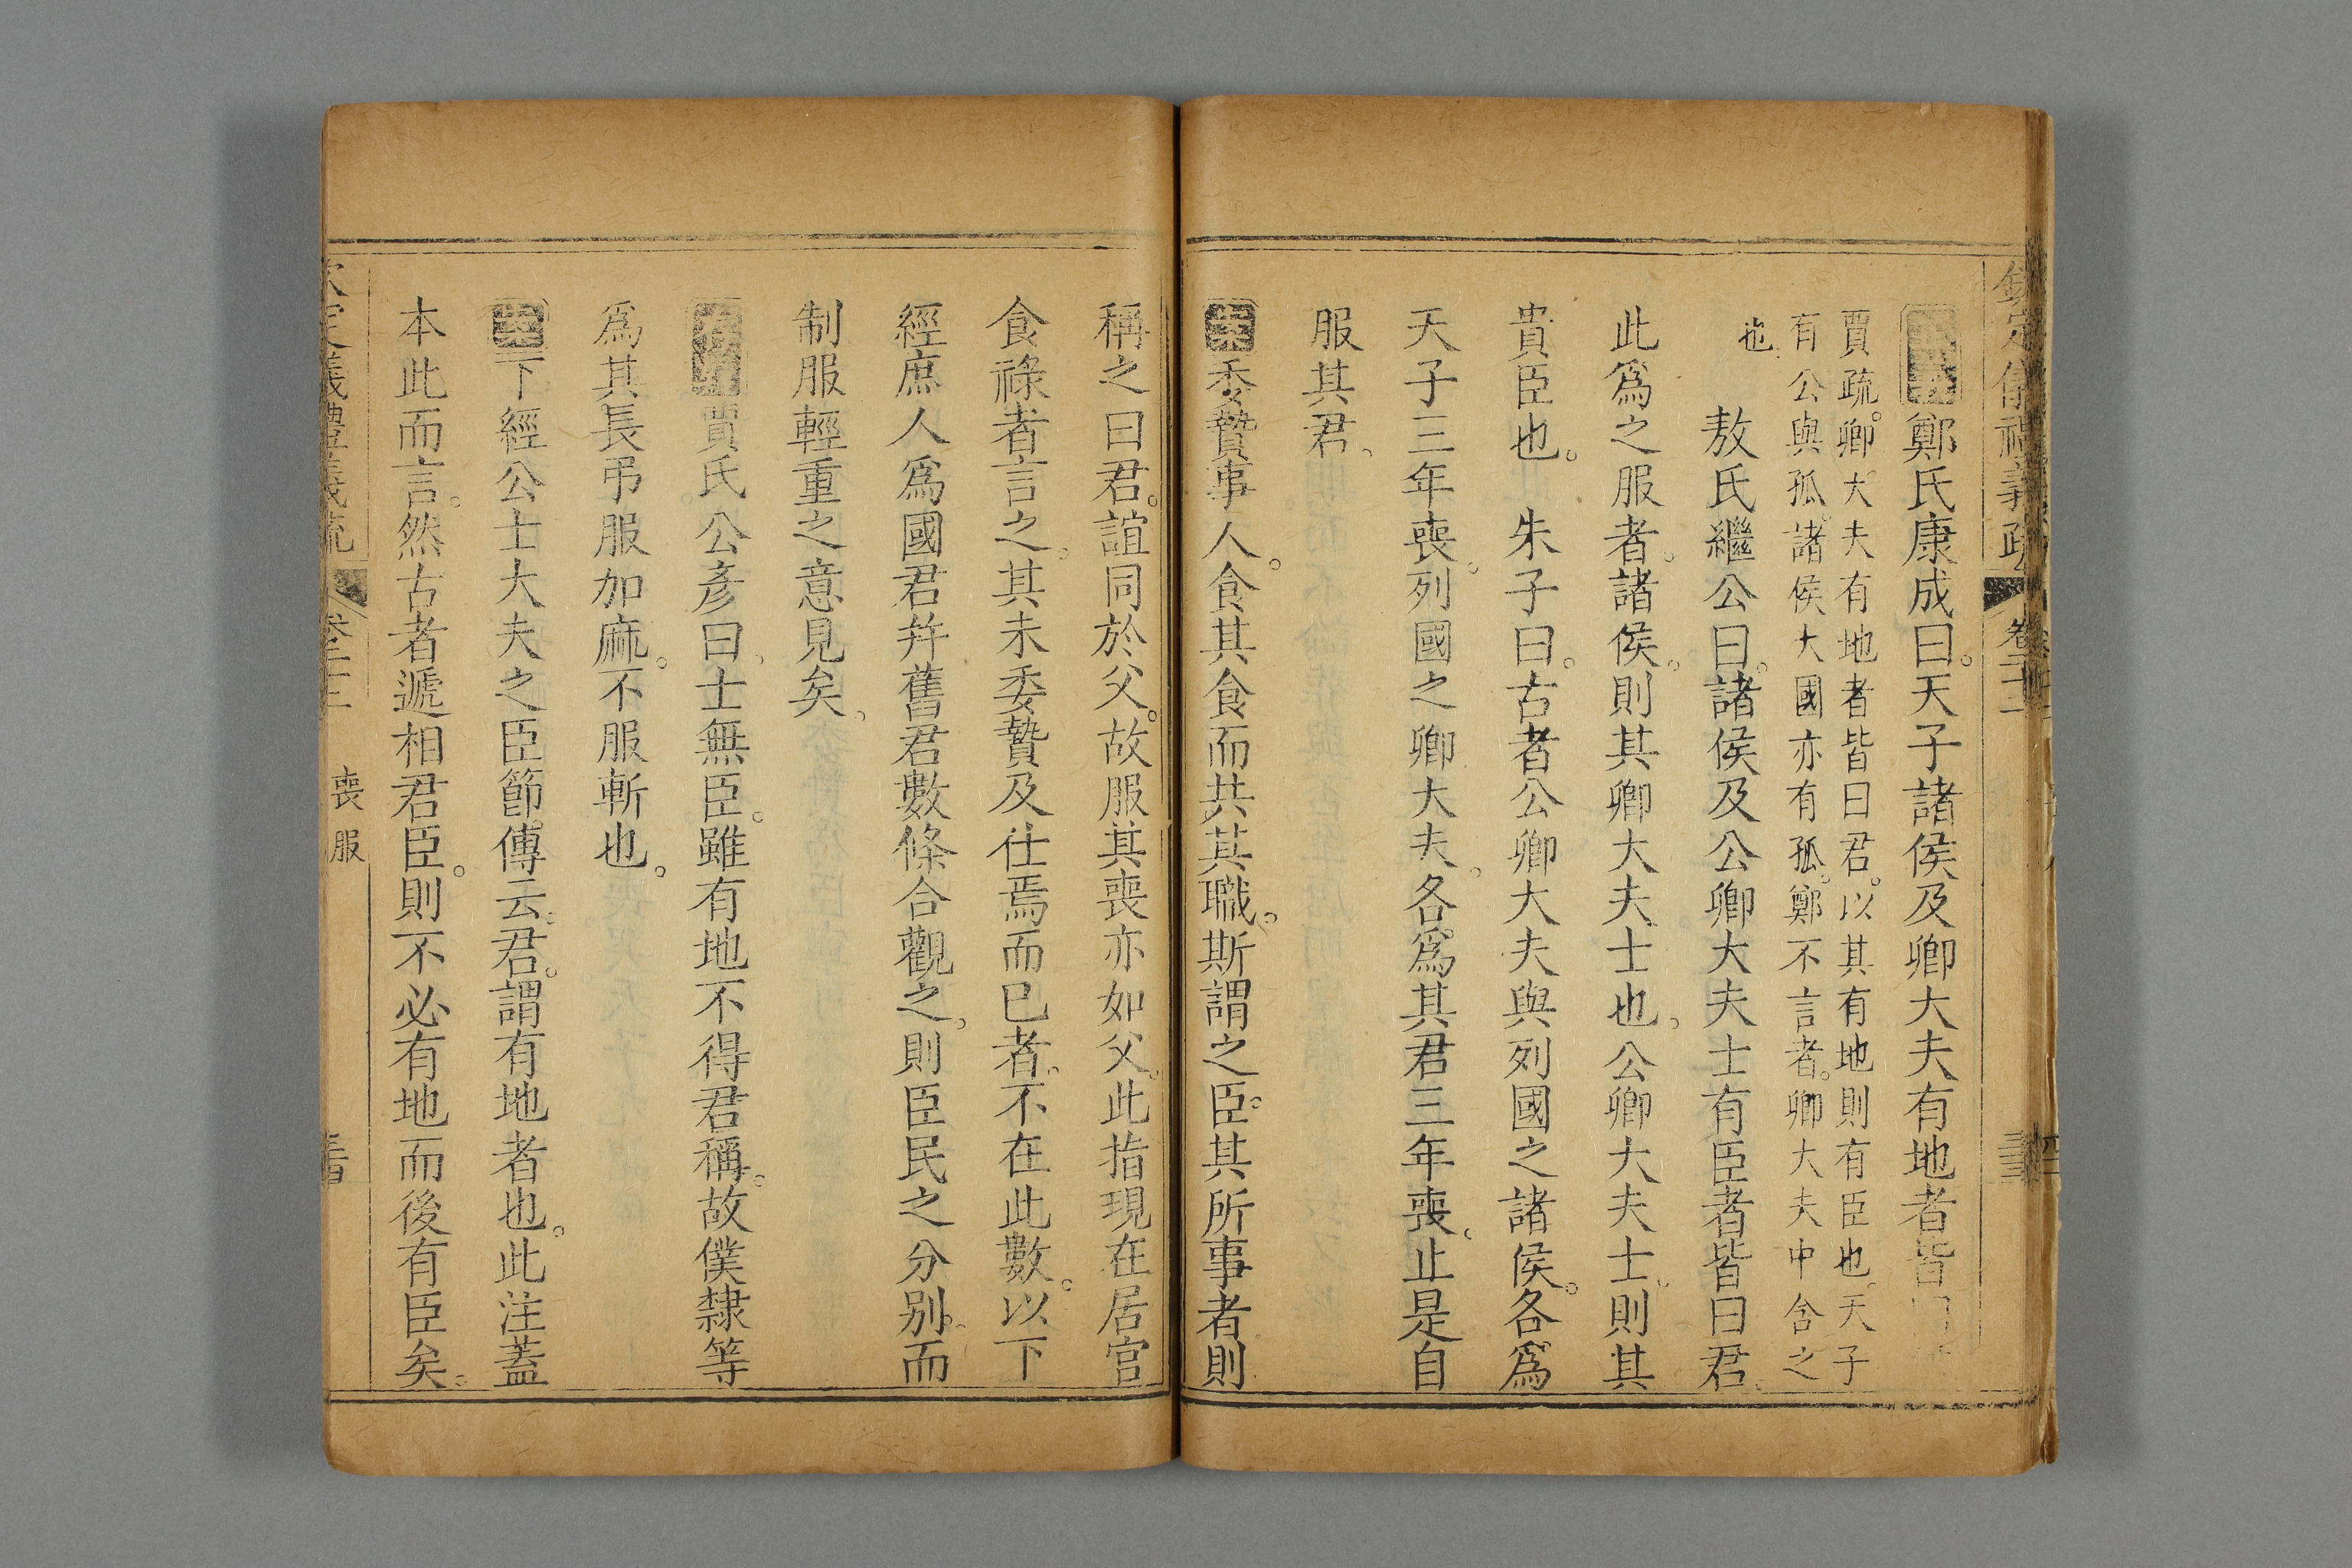 欽定儀禮義疏 卷二十二
正義鄭氏康成曰。天子諸侯及卿大夫有地者皆曰
賈疏。卿大夫有地者皆曰君。以其有地則有臣也。天子
有公與孤。諸侯大國亦有孤。鄭不言者。卿大夫中含之
也。
敖氏繼公曰。諸侯及公卿大夫士有臣者皆曰君。
此爲之服者。諸侯。則其卿大夫士也。公卿大夫士。則其
貴臣也。 朱子曰。古者公卿大夫與列國之諸侯。各爲
天子三年喪。列國之卿大夫。各爲其君三年喪。止是自
服其君。
案委贄事人。食其食而共其職。斯謂之臣。其所事者則
稱之曰君。誼同於父。故服其喪亦如父。此指現在居官
食祿者言之。其未委贄及仕焉而已者。不在此數。以下
經庶人爲國君并舊君數條合觀之。則臣民之分別。而
制服輕重之意見矣。
存疑賈氏公彥曰。士無臣。雖有地不得君稱。故僕隸等
爲其長弔服加麻。不服斬也。
案下經公士大夫之臣節。傳云。君。謂有地者也。此注蓋
本此而言。然古者遞相君臣。則不必有地而後有臣矣。
定儀禮義疏 卷二十二 喪服